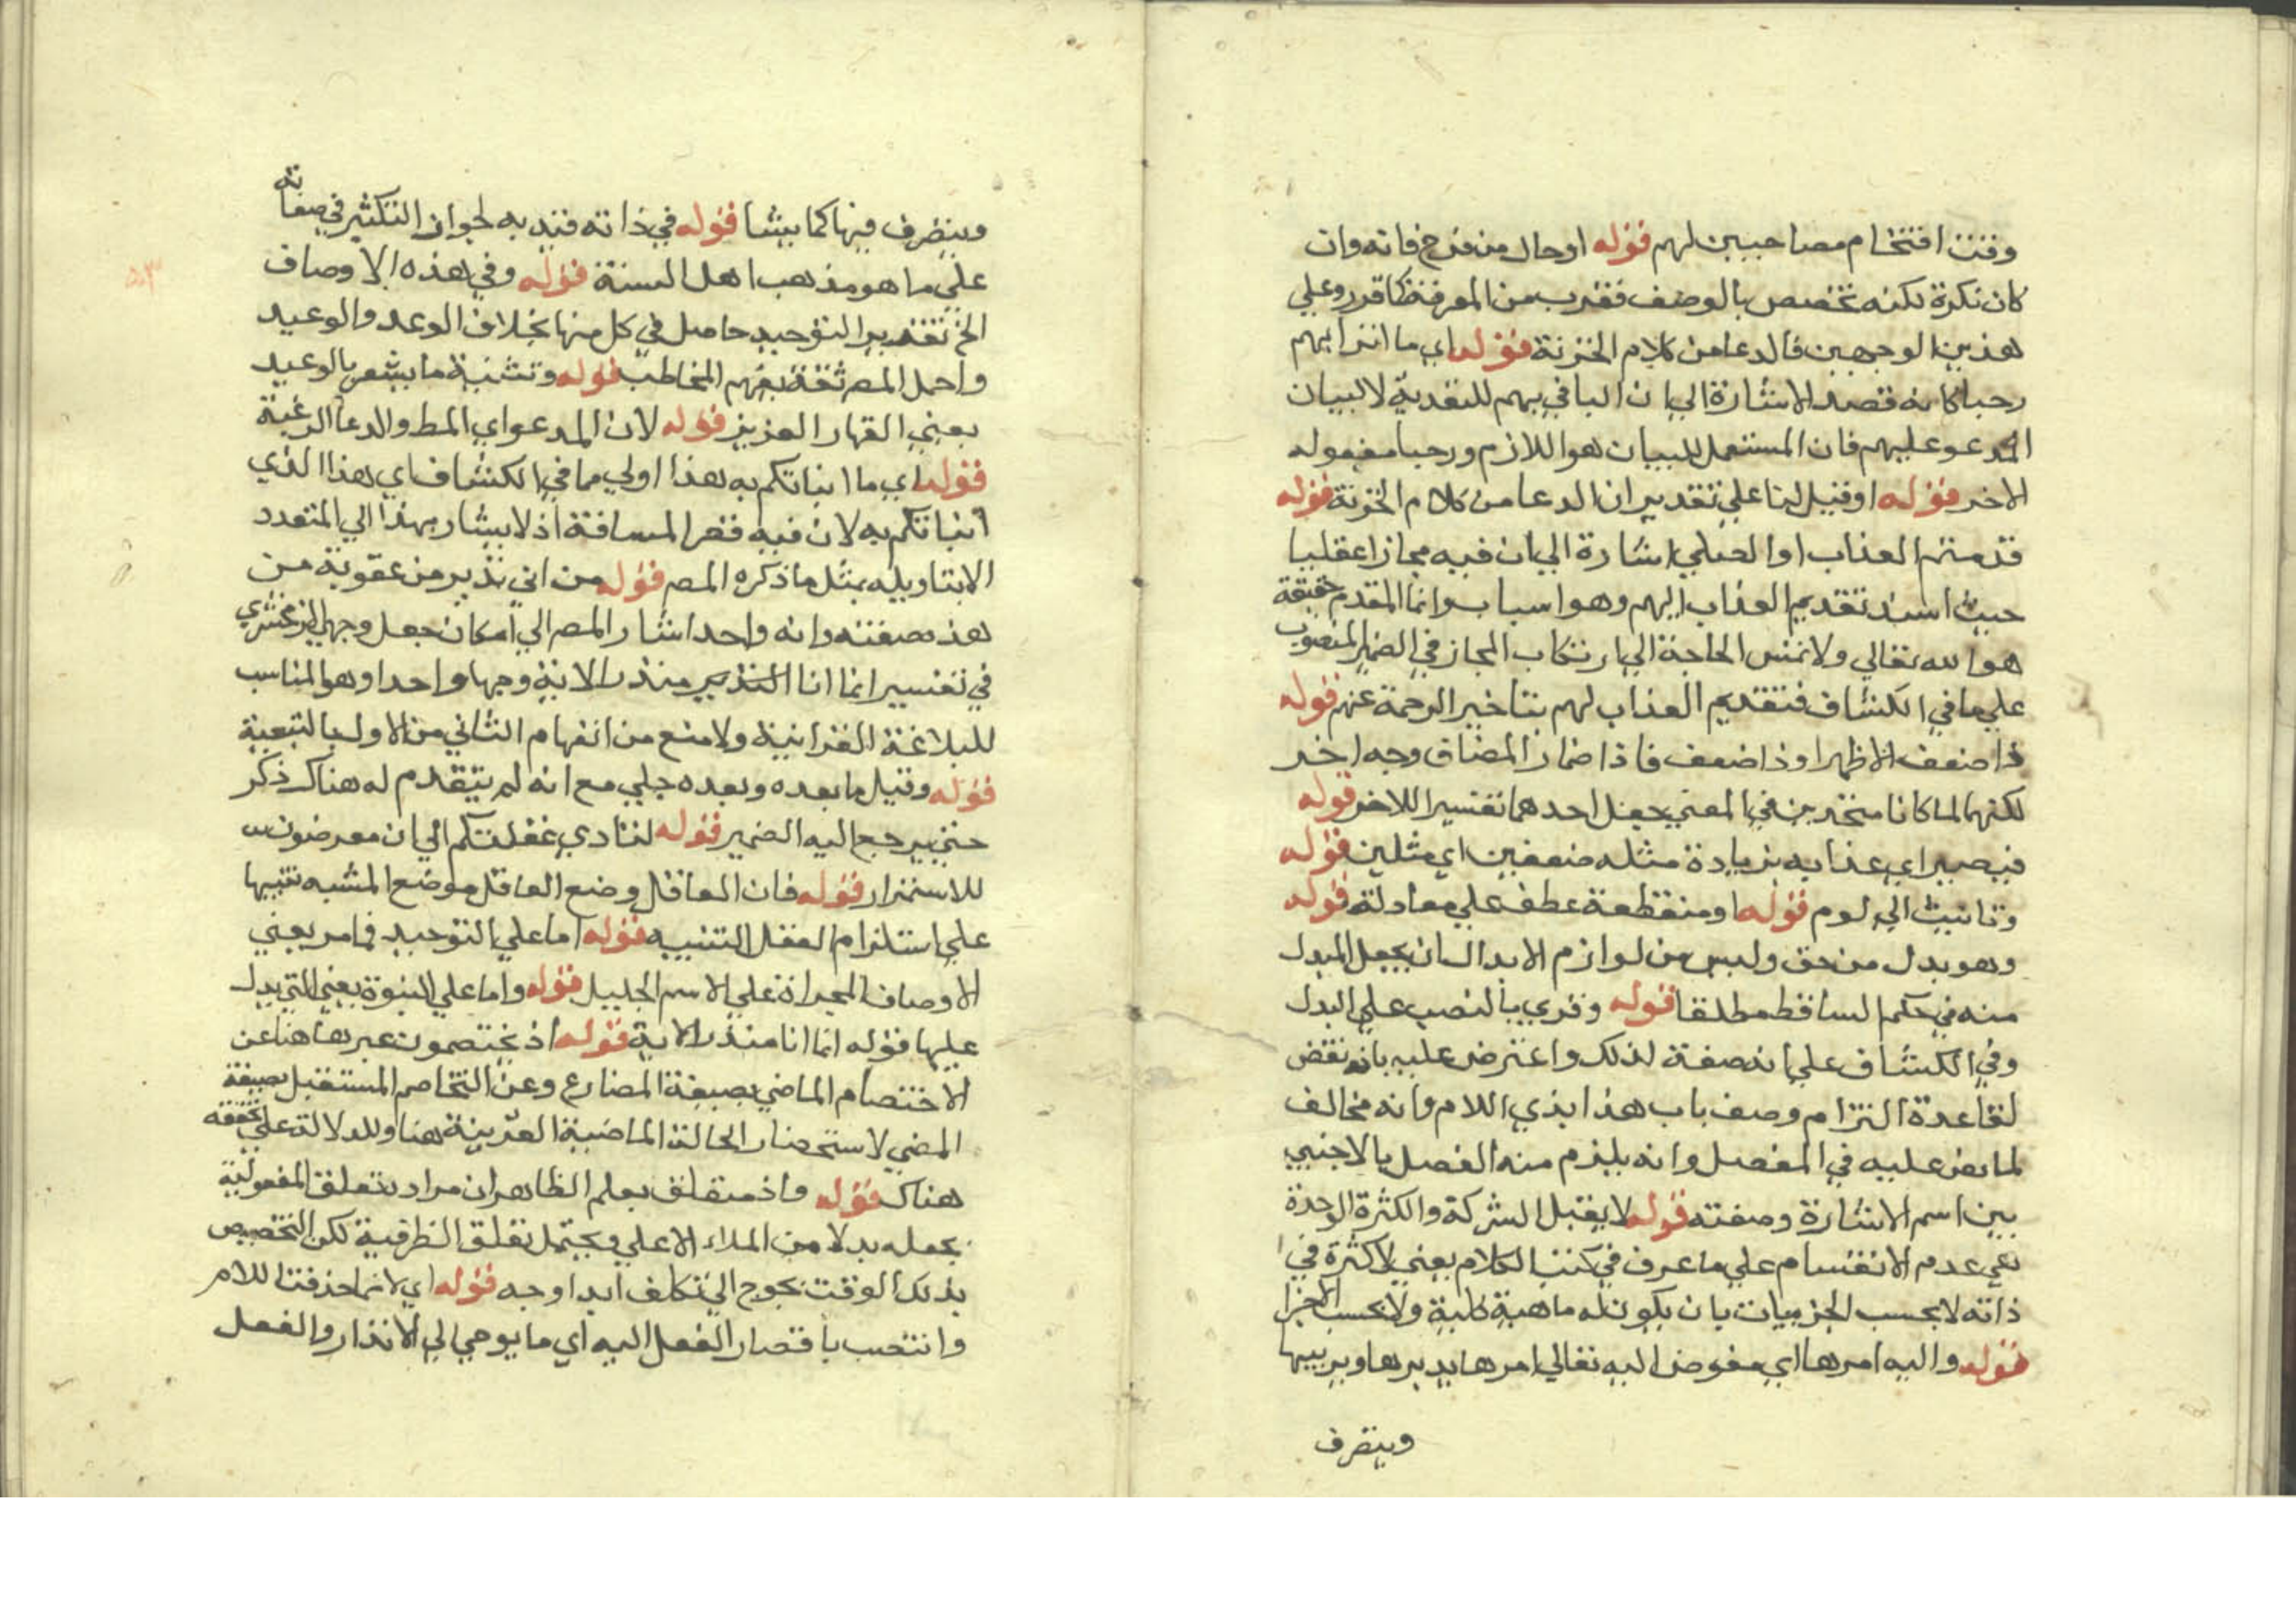 وقت اقتحام مصاحبين لهم قوله او حال من فوج فانه وان
كان نكرة لكنه تخصص بالوصف فقرب من المعرفة كما قرر وعلى
هذين الوجهين فالدعا من كلام الخزنة قوله اي ما اتوا بهم
رحبا كانه قصد الاشارة الى ان البا في بهم للتعدية لا لبيان
المدعو عليهم فان المستعمل للبيان هو اللازم ورحبا مفعوله
الاخر قوله او قيل لنا على تقدير ان الدعا من كلام الخزنة قوله
قدمتم العذاب او الصلي اشارة الى ان فيه مجازا عقليا
حيث اسند تقديم العذاب اليهم وهو اسبابه وانما المقدم حقيقة
هو الله تعالى ولا تمس الحاجة الى ارتكاب المجاز في الضمير المنصوب
على ما في الكشاف فتقديم العذاب لهم بتاخير الرحمة عنهم قوله
ذا ضعف الاظهر او ذا ضعف فاذا ضمار المضاف وجه اخر
لكنهما لما كانا متحدين في المعنى جعل احدهما تفسيرا للاخر قوله
فيصير اي عذابه بزيادة مثله ضعفين اي مثلين قوله
وتانيث الى لوم قوله او منقطعة عطف على معادلة قوله
وهو بدل من حق وليس من لوازم الابدال ان يجعل المبدل
منه في حكم الساقط مطلقا قوله وقري بالنصب على البدل
وفي الكشاف على انه صفة لذلك واعترض عليه بانه نقض
لقاعدة التزام وصف باب هذا بذي اللام وانه مخالف
لما نص عليه في المفصل وانه يلزم منه الفصل بالاجنبي
بين اسم الاشارة وصفته قوله لا يقبل الشركة والكثرة الوحدة
بمعنى عدم الانقسام على ما عرف في كتب الكلام يعني لا كثرة في
ذاته لا بحسب الجزييات بان يكون له ماهية كلية ولا بحسب الاجزا
قوله واليه امرها اي مفوض اليه تعالى امرها يدبرها ويربيها
ويتصرف
ويتصرف فيها كما يشا قوله في ذاته قيد به لجواز التكثير في صفاته
على ما هو مذهب اهل السنة قوله وفي هذه الاوصاف
الخ تقدير التوحيد حاصل في كل منها بخلاف الوعد والوعيد
واحمل المصر ثقة بفهم المخاطب قوله وتثنية ما يشعر بالوعيد
يعني القهار العزيز قوله لان المدعو اي المط والدعا الرغبة
قوله اي ما انباتكم به هذا اولى مما في الكشاف اي هذا الذي
انباتكم به لان فيه قصر المسافة اذ لا يشار بهذا الى المتعدد
الا بتاويله بمثل ما ذكره المصر قوله من اني نذير من عقوبة من
هذه صفته وانه واحد اشار المصر الى امكان جعل وجهي الزمخشري
في تفسير انما انا النذير منذر الاية وجها واحدا وهو المناسب
للبلاغة القرانية ولا منع من انفهام الثاني من الاول بالتبعية
قوله وقيل ما بعده وبعده جلي مع انه لم يتقدم له هناك ذكر
حتى يرجع اليه الضمير قوله لتمادي غفلتكم الى ان معرضون
للاستمرار قوله فان العاقل وضع العاقل موضع المشبه تنبيها
على استلزام العقل التنبيه قوله اما على التوحيد فما مر يعني
الاوصاف المجراة على الاسم الجليل قوله واما على النبوة يعني التي يدل
عليها قوله انما انا منذر الاية قوله اذ يختصمون عبر هاهنا عن
الاختصام الماضي بصيغة المضارع وعن التخاصم المستقبل بصيغة
المضي لاستحضار الحالة الماضية الغريبة هنا وللدلالة على تحققه
هناك قوله واذ متعلق بعلم الظاهر ان مراده تعلق المفعولية
بجعله بدلا من الملاء الاعلى ويحتمل تعلق الظرفية لكن التخصيص
بذلك الوقت يحوج الى تكلف ابدا وجه قوله اي لانما حذفت اللام
وانتصب بافتصار الفعل اليه اي ما يوحى الي الانذار والفعل